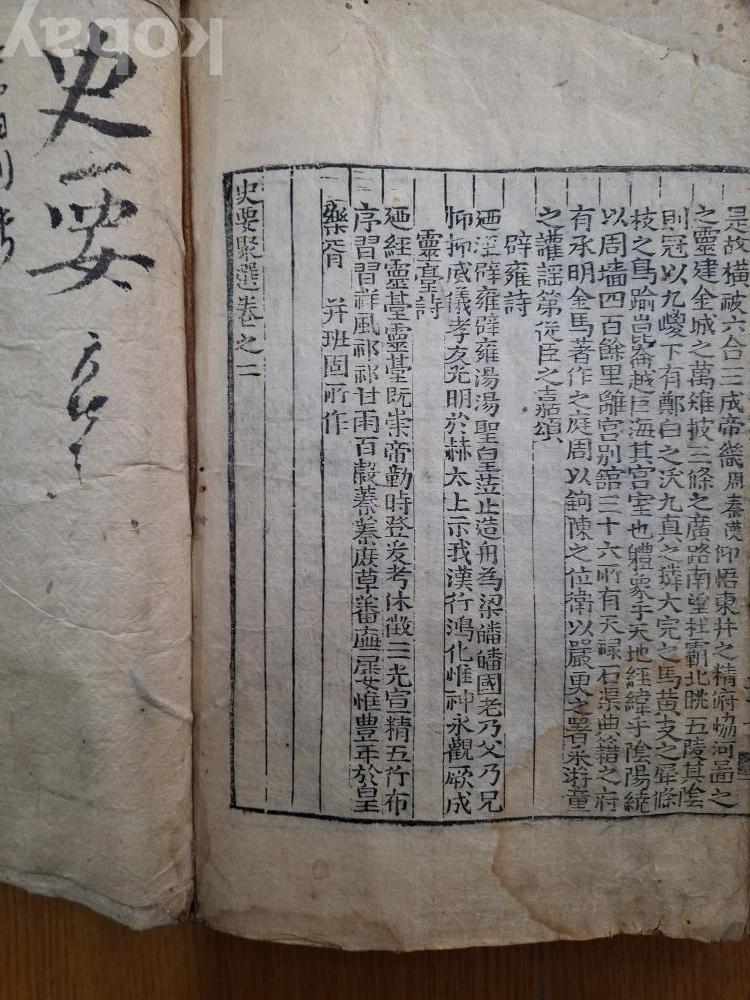 是故橫被六合三成帝畿周秦漢仰悟東井之精府協河圖之
之靈建金城之萬雉披三條之廣路南望杜霸北眺五陵其陰
則冠以九嵕下有鄭白之沃九真之獜大宛之馬黃支之犀條
枝之鳥踰崑崙越巨海其宮室也體象乎天地經緯乎陰陽繞
以周墻四百餘里離宮別舘三十六所有天禄石渠典籍之府
有承明金馬著作之庭周以鉤陳之位衛以嚴更之署采游童
之讙謡第從臣之嘉頌
辟雍詩
迺涇辟雍辟雍湯湯聖皇莅止造舟為梁皤皤國老乃父乃兄
抑抑威儀孝友光明於赫太上示我漢行鴻化惟神永觀厥成
靈臺詩
迺経靈䑓靈䑓既崇帝勤時登爰考休徵三光宣精五行布
序習習祥風祁祁甘雨百穀蓁蓁庶草蕃廡屢惟豊年於皇
樂胥 并班固所作
史要聚選卷之二
史要
kobay